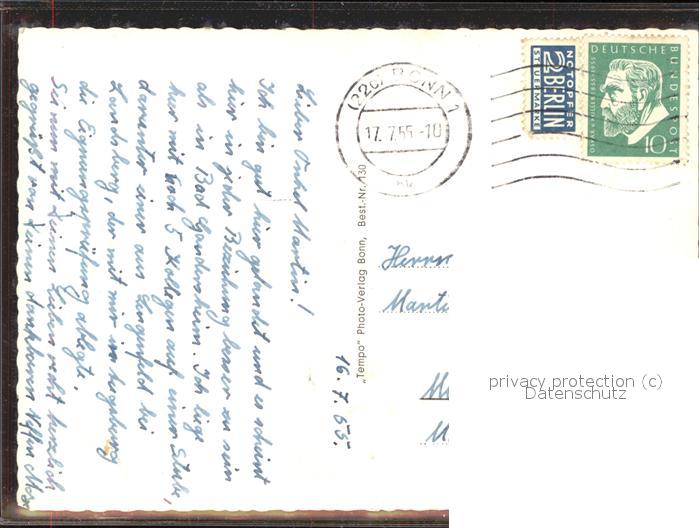 16. 7. 55.
Lieber Onkel Martin!
Ich bin gut hier gelandet und es scheint
hier in jeder Beziehung besser zu sein
als in Bad Gandersheim. Ich liege
hier mit noch 5 Kollegen auf einer Stube,
darunter einer aus bei
Landsberg, der mit mir in Augsburg
die Eignungsprüfung ablegte.
Sei nun mit Deinen Lieben recht herzlich
gegrüßt von Deinem dankbaren Neffen
"Tempo" Photo-Verlag Bonn, Best.-Nr. 130
(22c) BONN 1
17. 7. 55 -10
NOTOPFER
2 BERLIN
STEUERMARKE
DEUTSCHE BUNDESPOST
10
Herrn
Marti
privacy protection (c)
Datenschutz